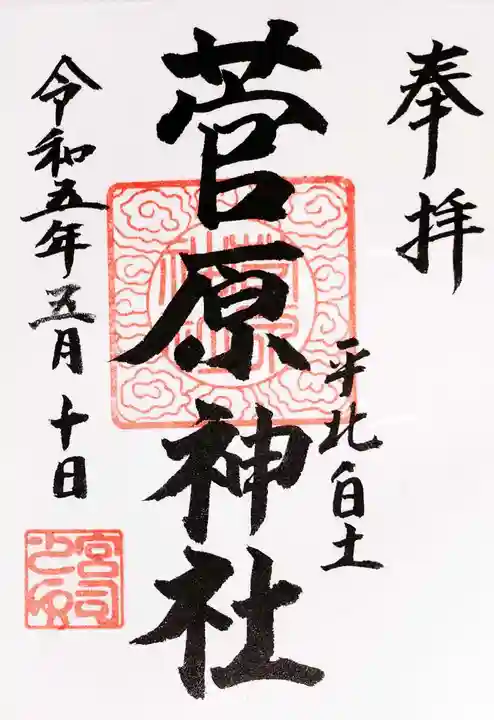 奉拝
平北白土
菅原神社
令和五年五月十日
菅原神社
宮司之印